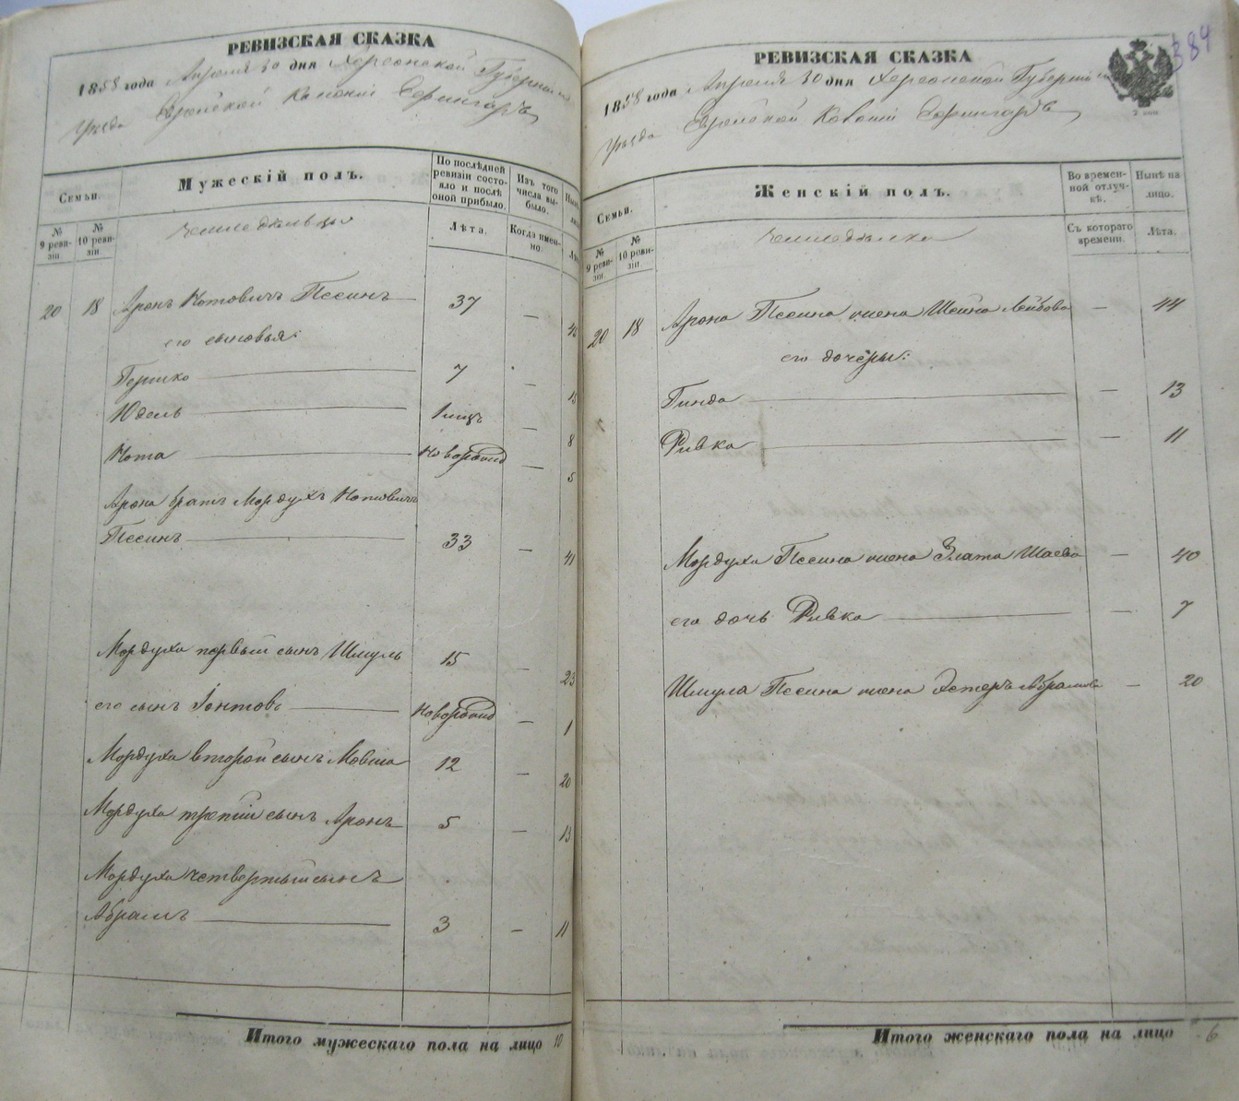 РЕВИЗСКАЯ СКАЗКА
1858 года Апреля 30 дня Херсонской Губернии
Уезда Еврейской Колонии
Семьи.
Мужескій полъ.
По послѣдней ревизіи состояло и послѣ оной прибыло.
Изъ того числа выбыло.
№ 9 ревизіи
№ 10 ревизіи
Лѣта.
Когда именно.
Земледѣльцы
20 18 Аронъ Нотовичъ Песинъ 37 —
его сыновья:
Гершко 7 — 18
Юдель 1 мцъ — 8
Нота Новорожд — 5
Арона братъ Мордухъ Нотовичъ
Песинъ 33 — 41
Мордуха первый сынъ Шмуль 15 — 23
его сынъ Іонтовъ Новорожд — 1
Мордуха второй сынъ Мовша 12 — 20
Мордуха третій сынъ Аронъ 5 — 13
Мордуха четвертый сынъ
Абрамъ 3 — 11
Итого мужескаго пола на лицо 10
384
РЕВИЗСКАЯ СКАЗКА
1858 года Апреля 30 дня Херсонской Губерніи
Уезда Еврейской Колоніи
Семьи.
Женскій полъ.
Во временной отлучкѣ.
Нынѣ на лицо.
№ 9 ревизіи
№ 10 ревизіи
Съ котораго времени.
Лѣта.
Земледѣлки
20 18 Арона Песина жена Шейна Лейбова — 44
его дочеры:
Гинда — 13
Ривка — 11
Мордуха Песина жена Злата Шаева — 40
его дочь Ривка — 7
Шмуля Песина жена Эстеръ Абрамова — 20
Итого женскаго пола на лицо 6